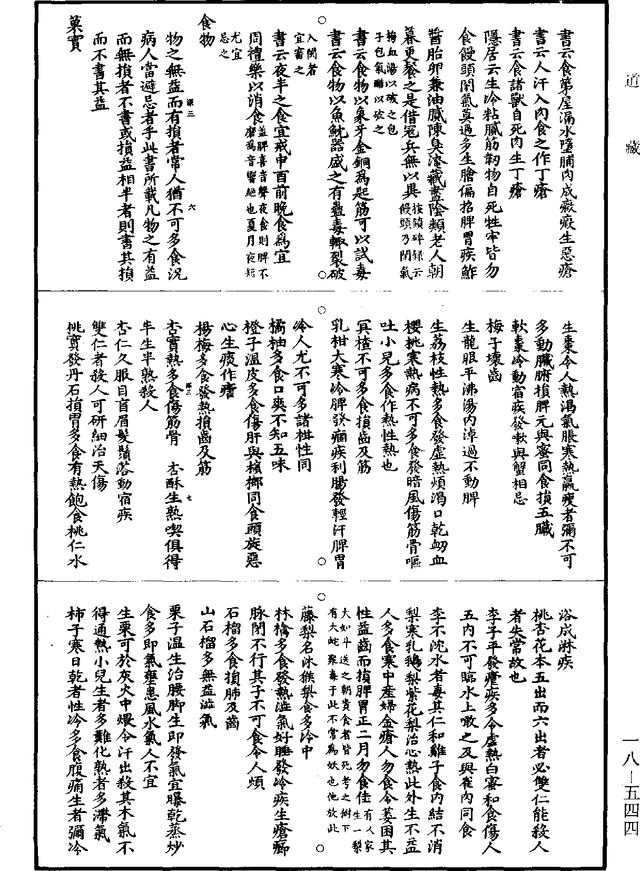 道藏
書云食茅屋漏水墮脯肉成癥瘕生惡瘡
書云人汗入肉食之作丁瘡
書云食諸獸自死肉生丁瘡
隱居云生冷粘膩筋韌物自死牲牢皆勿
食饅頭閉氣莫過多生膾偏招脾胃疾鮓
醬胎卵兼油膩陳臭淹藏盡陰類老人朝
暮更餐之是借寇兵無以異
書云食物以象牙金銅為匙筯可以試毒
書云食物以魚魫器盛之有蠱毒輙裂破
入閩者宜審之
書云夜半之食宜戒申酉前晚食為宜
周禮樂以消食
尤宜忌之
食物
物之無益而有損者常人猶不可多食況
病人當避忌者乎此書所載凡物之有益
而無損者不書或損益相半者則書其損
而不書其益
菓實
生棗令人熱渴氣脹寒熱羸瘦者彌不可
多動臟腑損脾元與蜜同食損五臟
軟棗冷動宿疾發嗽與蟹相忌
梅子壞齒
生龍眼平沸湯內淖過不動脾
生荔枝性熱多食發虛熱煩渴口乾衂血
櫻桃寒熱病不可多食發暗風傷筋骨嘔
吐小兒多食作熱性熱也
㮈樝不可多食損齒及筋
乳柑大寒冷脾發痼疾利腸發輕汗脾胃
冷人尤不可多諸柑性同
橘柚多食口爽不知五味
橙子溫皮多食傷肝與檳榔同食頭旋惡
心生痰作瘧
楊梅多食發熱損齒及筋
杏實熱多食傷筋骨 杏酥生熟喫俱得
半生半熟殺人
杏仁久服目首眉髮鬚落動宿疾
雙仁者殺人可研細治犬傷
桃實發丹石損胃多食有熱飽食桃仁水
浴成淋疾
桃杏花本五出而六出者必雙仁能殺人
者失常故也
李子平發瘧疾多令虛熱白蜜和食傷人
五內不可臨水上噉之及與雀肉同食
李不沈水者毒其仁和雞子食內結不消
梨寒乳鵝梨紫花梨治心熱此外生不益
人多食寒中產婦金瘡人勿食令萎困其
性益齒而損脾胃正二月勿食佳
藤梨名沐猴梨食多冷中
林檎多食發熱澁氣好睡發冷疾生瘡癤
脉閉不行其子不可食令人煩
石榴多食損肺及齒
山石榴多無益澁氣
栗子溫生治腰脚生即發氣宜曝乾蒸炒
食多即氣壅患風水氣人不宜
生栗可於灰火中煨令汗出殺其木氣不
得通熱小兒生者多難化熟者多滯氣
柿子寒日乾者性冷多食腹痛生者彌冷
一八－五四四